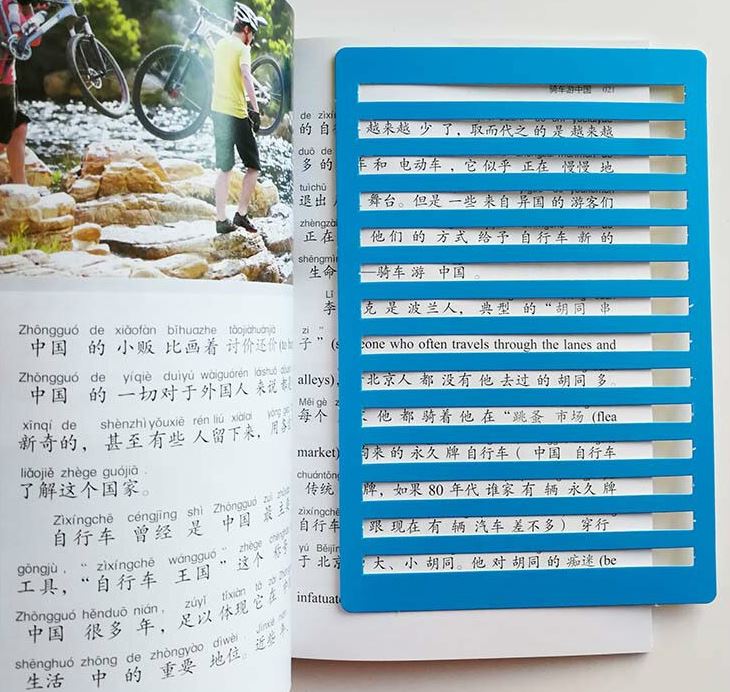 Zhōngguó de xiǎofàn bǐhuàzhe tǎojiàhuánjià
中国 的 小贩 比画着 讨价还价
Zhōngguó de yíqiè duìyú wàiguórén láishuō
中国 的 一切对于外国人 来说 都
xīnqí de shènzhì yǒuxiē rén liú xiàlái
新奇的，甚至有些 人留下来，用各
liǎojiě zhège guójiā.
了解这个国家。
Zìxíngchē céngjīng shì Zhōngguó zuì
自行车 曾经 是 中国 最 主
gōngjù, “zìxíngchē wángguó” zhège
工具，“自行车 王国” 这个
Zhōngguó hěnduō nián, zúyǐ tǐxiàn tā zài
中国 很多 年，足以 体现 它 在
shēnghuó zhōng de zhòngyào dìwèi. Jìnxiē nián
生活 中 的 重要 地位。近些 年
骑车游中国 021
de
的 自 越来越 少 了，取而代之 的 是 越来越
duō de
多 的 车 和 电动车，它 似乎 正在 慢慢 地
tuìchū
退出 舞台。但是 一些 来自 异国 的 游客们
zhèngzài
正在 他们 的 方式 给予 自行车 新 的
shēngmìng
生命 —骑车游 中国。
Lǐ
李 克 是 波兰人，典型 的 “胡同 串
zi ”
子” one who often travels through the lanes and
alleys), 北京人 都 没有 他 去过 的 胡同 多。
Měi gè
每个 他 都 骑着 他 在 “跳蚤 市场 (flea
market) 来 的 永久 牌 自行车（中国 自行车
chuántǒng
传统 牌，如果 80 年代 谁家 有 辆 永久 牌
zìxíngchē
自行车 跟 现在 有 辆 汽车 差不多）穿行
yú Běijīng
于 北京 大、小 胡同。他 对 胡同 的 痴迷 (be
infatuated